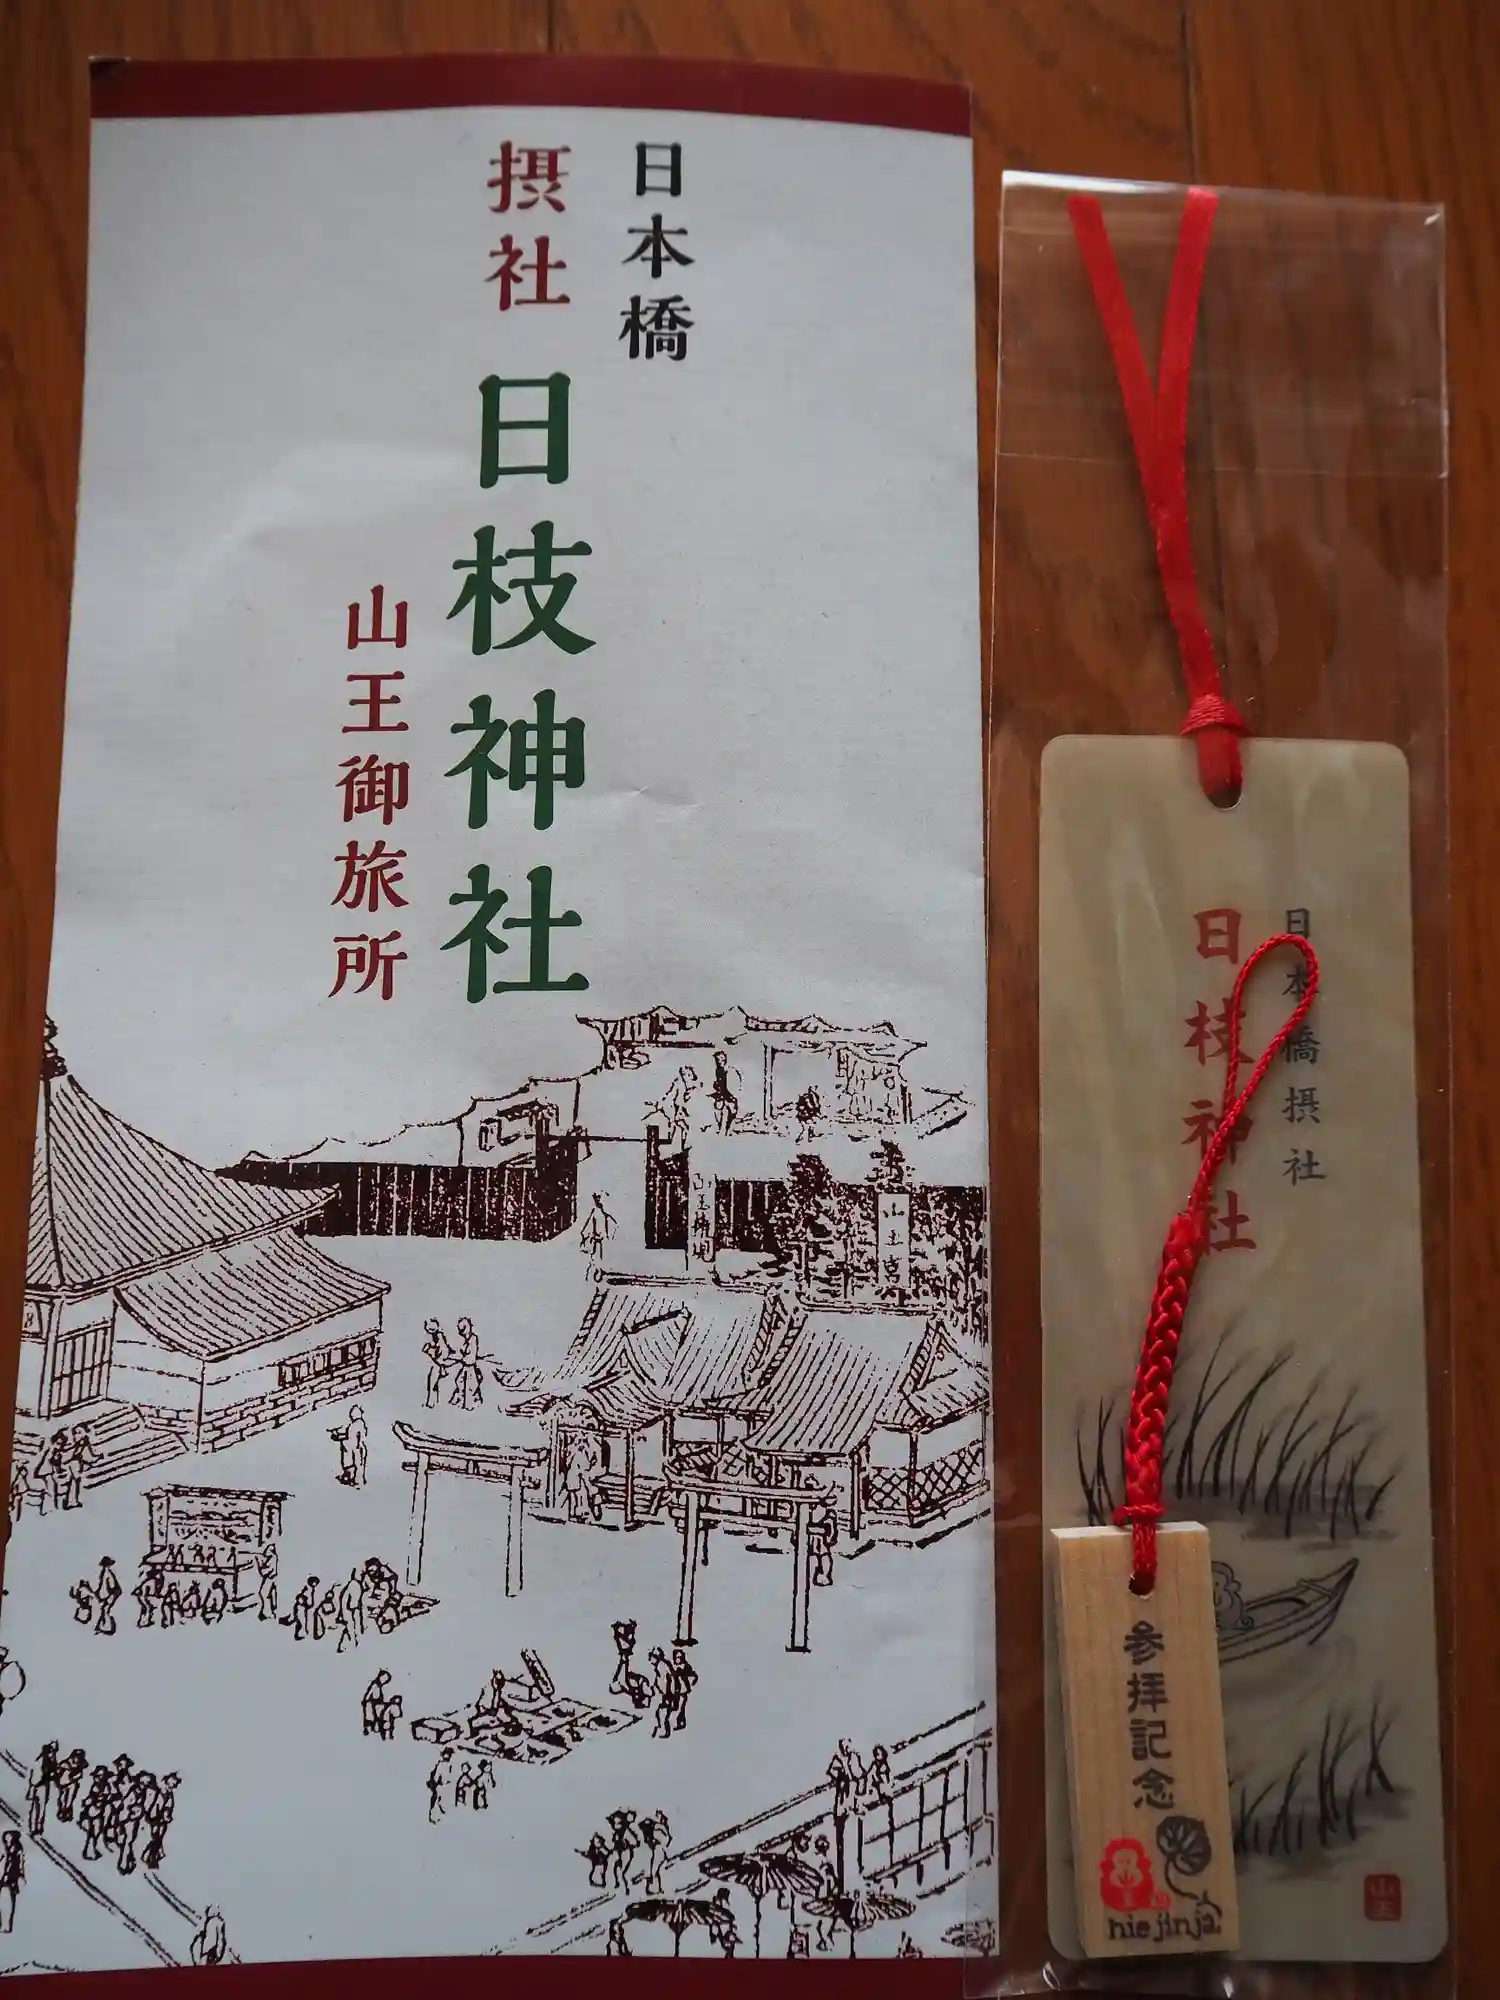 日本橋
摂社 日枝神社
山王御旅所
山王宮
日本橋摂社
日枝神社
参拝記念
hie jinja
山王